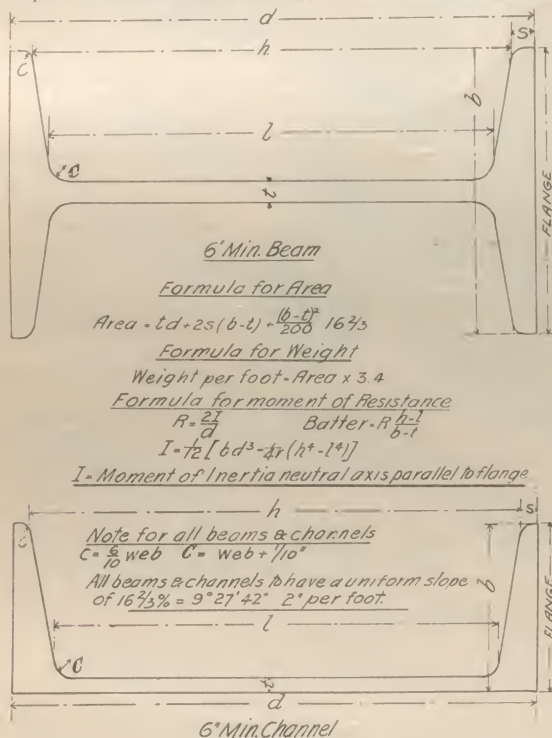 d
h
S
C
b
l
C
t
FLANGE
6" Min. Beam
Formula for Area
Area = td + 2s(b-t) + (b-t)²/200 16 2/3
Formula for Weight
Weight per foot = Area x 3.4
Formula for moment of Resistance
R = 2I/d Batter = R h-l/b-t
I = 1/12 [bd³ - 1/4r (h⁴ - l⁴)]
I = Moment of Inertia neutral axis parallel to flange
h
s
C
Note for all beams & channels
C = 6/10 web C = web + 1/10"
All beams & channels to have a uniform slope
of 16 2/3 % = 9° 27' 42" 2" per foot.
b
l
C
t
FLANGE
d
6" Min. Channel